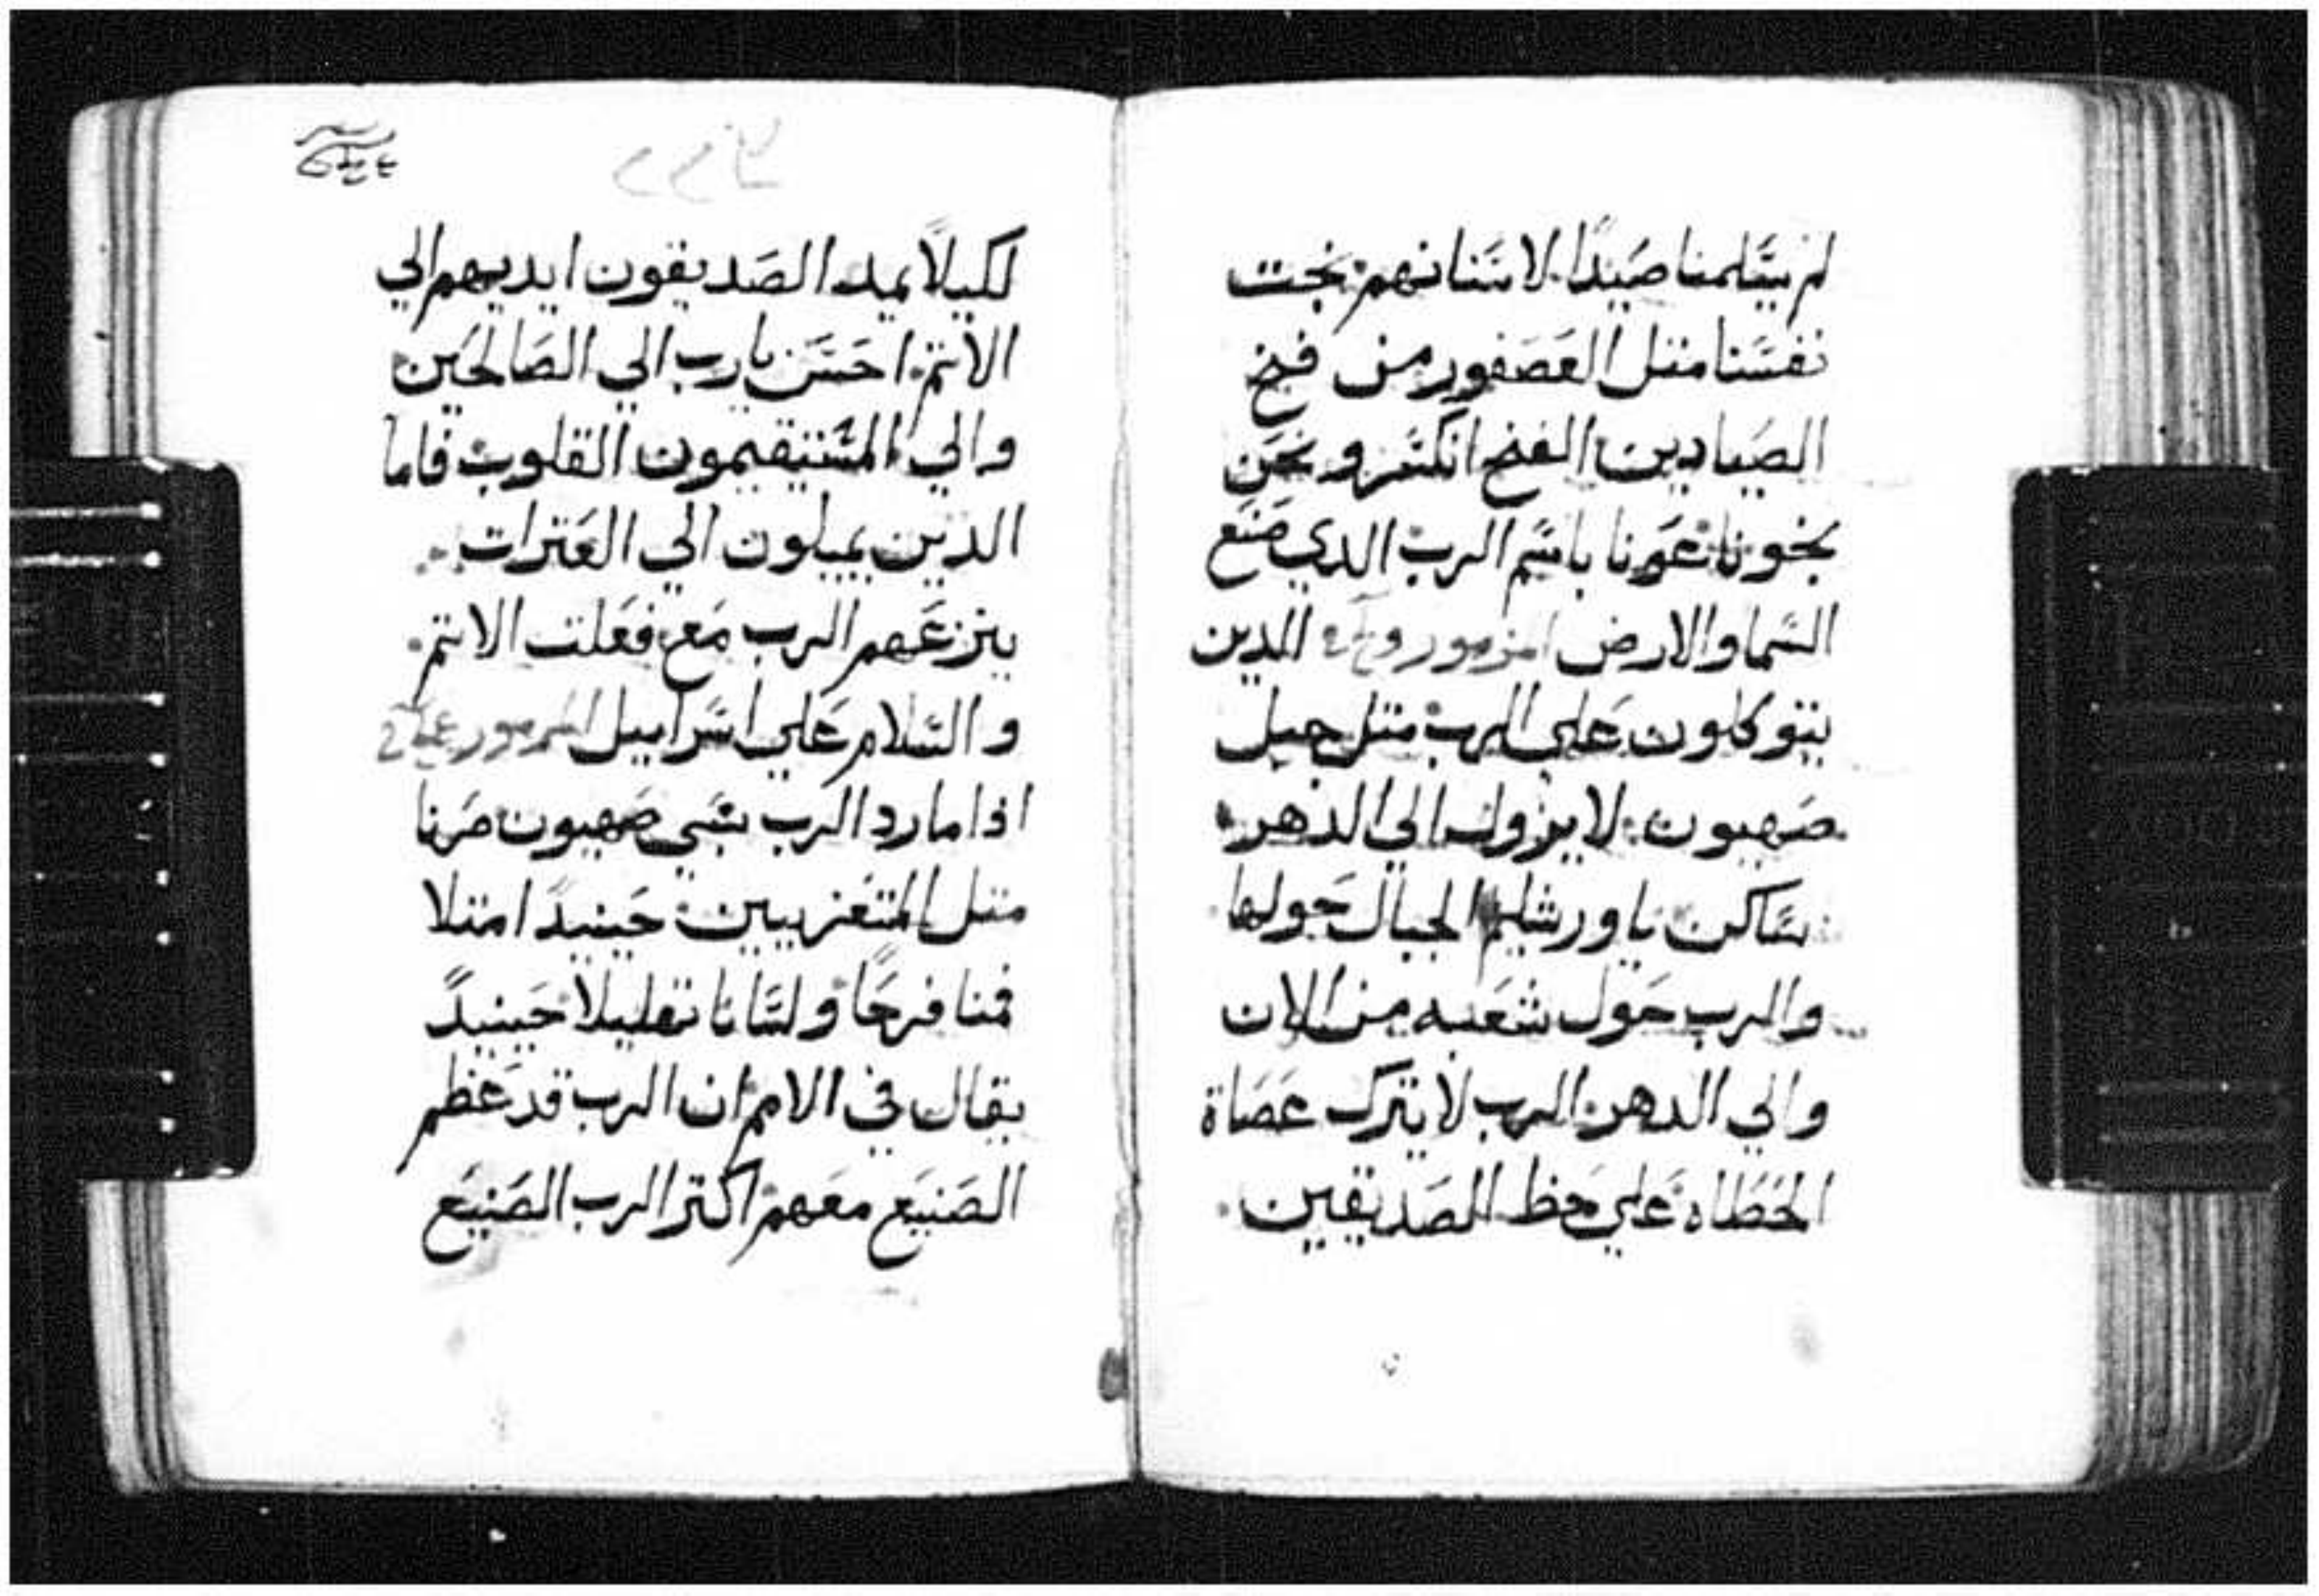 لم يسلمنا صيدًا لاسنانهم نجت
نفسنا متل العصفور من فخ
الصيادين الفخ انكسر ونحن
نجونا عوننا باسم الرب الدي صنع
السما والارض المزمور الدين
يتوكلون علي الرب متل جبل
صهيون لا يزول الي الدهر
ساكن ياورشليم الجبال حولها
والرب حول شعبه من الان
والي الدهر الرب لا يترك عصاة
الخطاه علي حظ الصديقين
لكيلا يمد الصديقون ايديهم الي
الاتم احسن يارب الي الصالحين
والي المستقيمون القلوب فاما
الدين يميلون الي العترات
ينزعهم الرب مع فعلت الاتم
والسلام علي اسراييل المزمور
اذا ما رد الرب سبي صهيون صرنا
متل المتعزيين حينيدًا امتلا
فمنا فرحًا ولساننا تهليلا حينيدً
يقال في الامم ان الرب قد عظم
الصنيع معهم اكتر الرب الصنيع